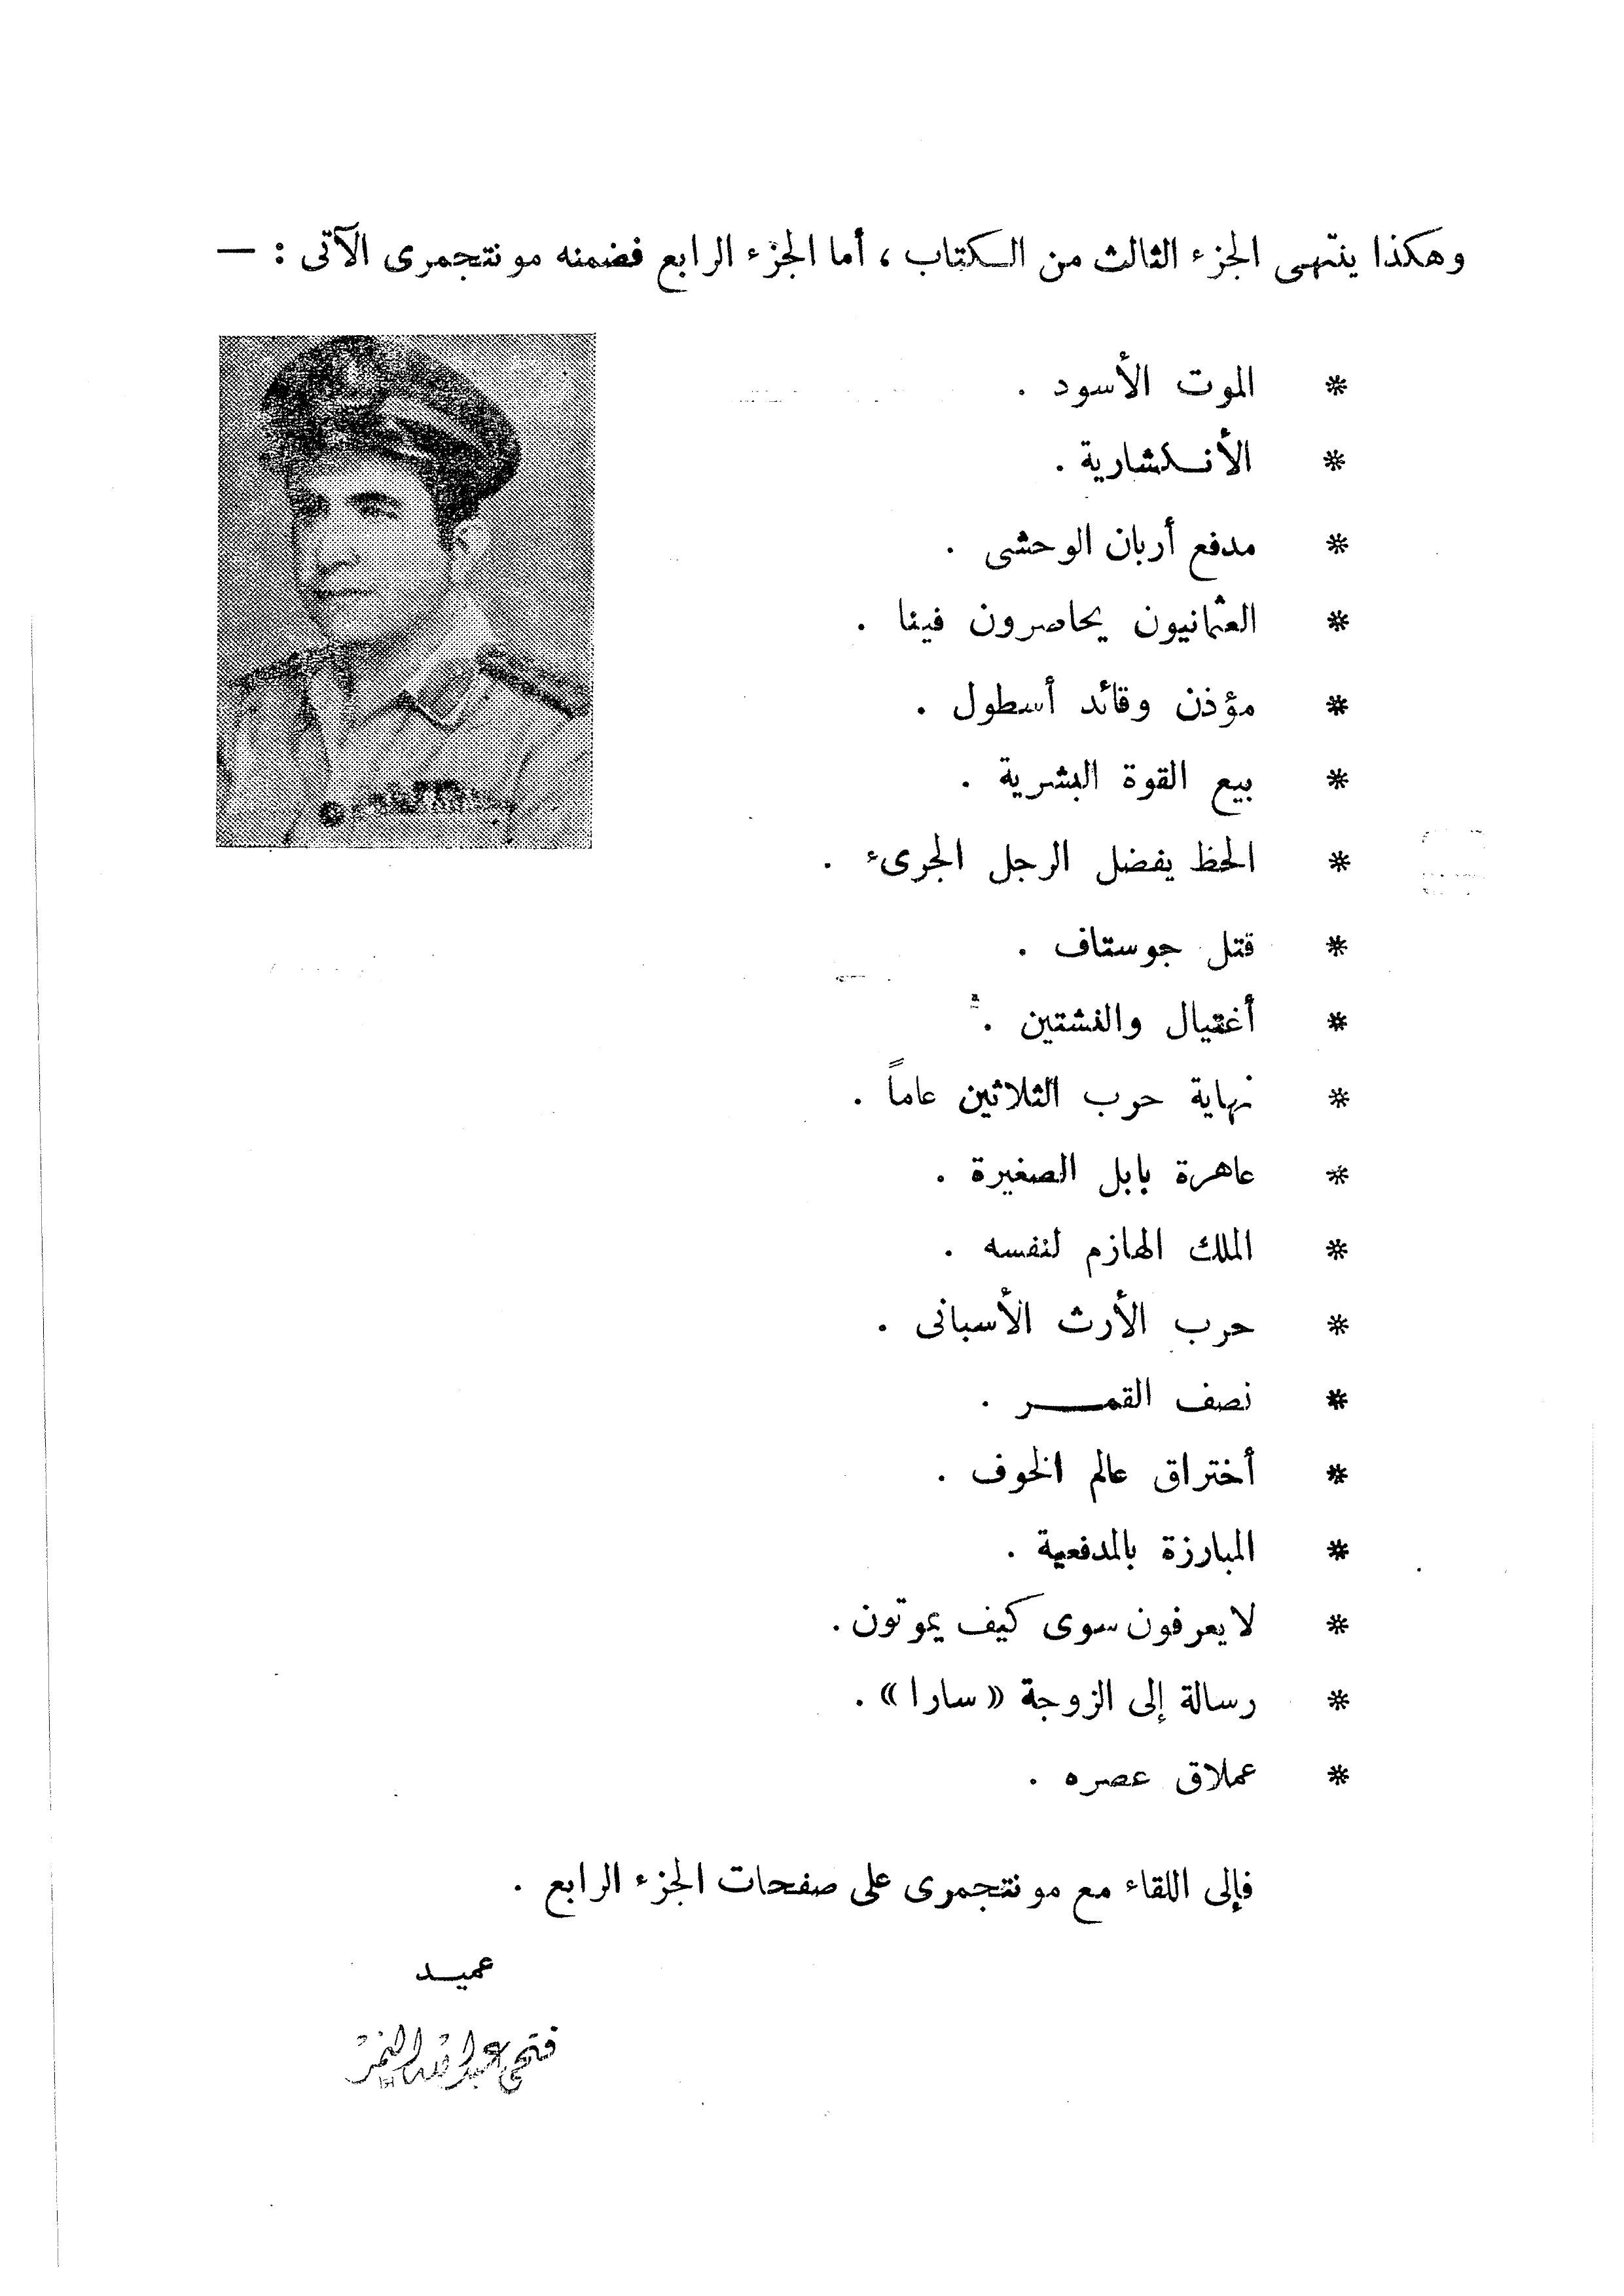 وهكذا ينتهى الجزء الثالث من الكتاب ، أما الجزء الرابع فضمنه مونتجمرى الآتى : —
* الموت الأسود .
* الأنكشارية .
* مدفع أربان الوحشى .
* العثمانيون يحاصرون فينا .
* مؤذن وقائد أسطول .
* بيع القوة البشرية .
* الحظ يفضل الرجل الجرىء .
* قتل جوستاف .
* أغتيال والنشتين .
* نهاية حرب الثلاثين عاماً .
* عاهرة بابل الصغيرة .
* الملك الهازم لنفسه .
* حرب الأرث الأسبانى .
* نصف القمر .
* أختراق عالم الخوف .
* المبارزة بالمدفعية .
* لا يعرفون سوى كيف يموتون .
* رسالة إلى الزوجة «سارا» .
* عملاق عصره .
فإلى اللقاء مع مونتجمرى على صفحات الجزء الرابع .
عميد
فتحى عبدالله النمر